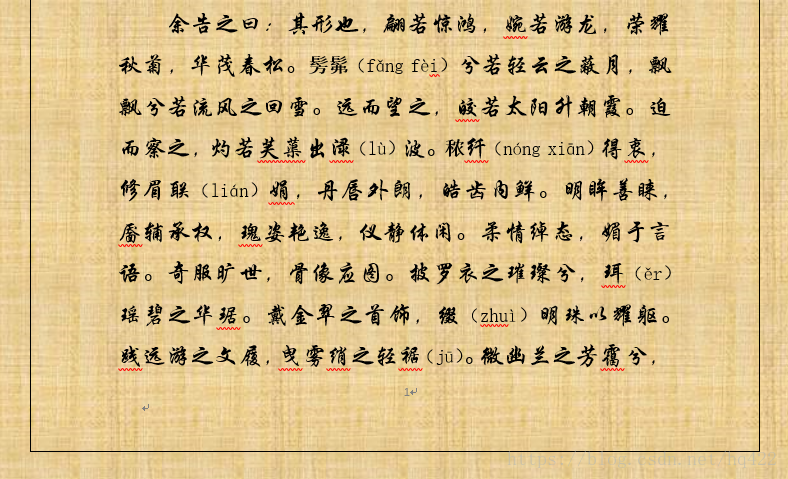 余告之曰：其形也，翩若惊鸿，婉若游龙，荣耀
秋菊，华茂春松。髣髴（fǎng fèi）兮若轻云之蔽月，飘
飘兮若流风之回雪。远而望之，皎若太阳升朝霞。迫
而察之，灼若芙蕖出渌（lù）波。秾纤（nóng xiān）得衷，
修眉联（lián）娟，丹唇外朗，皓齿内鲜。明眸善睐，
靥辅承权，瑰姿艳逸，仪静体闲。柔情绰态，媚于言
语。奇服旷世，骨像应图。披罗衣之璀璨兮，珥（ěr）
瑶碧之华琚。戴金翠之首饰，缀（zhuì）明珠以耀躯。
践远游之文履，曳雾绡之轻裾（jū）。微幽兰之芳霭兮，
1